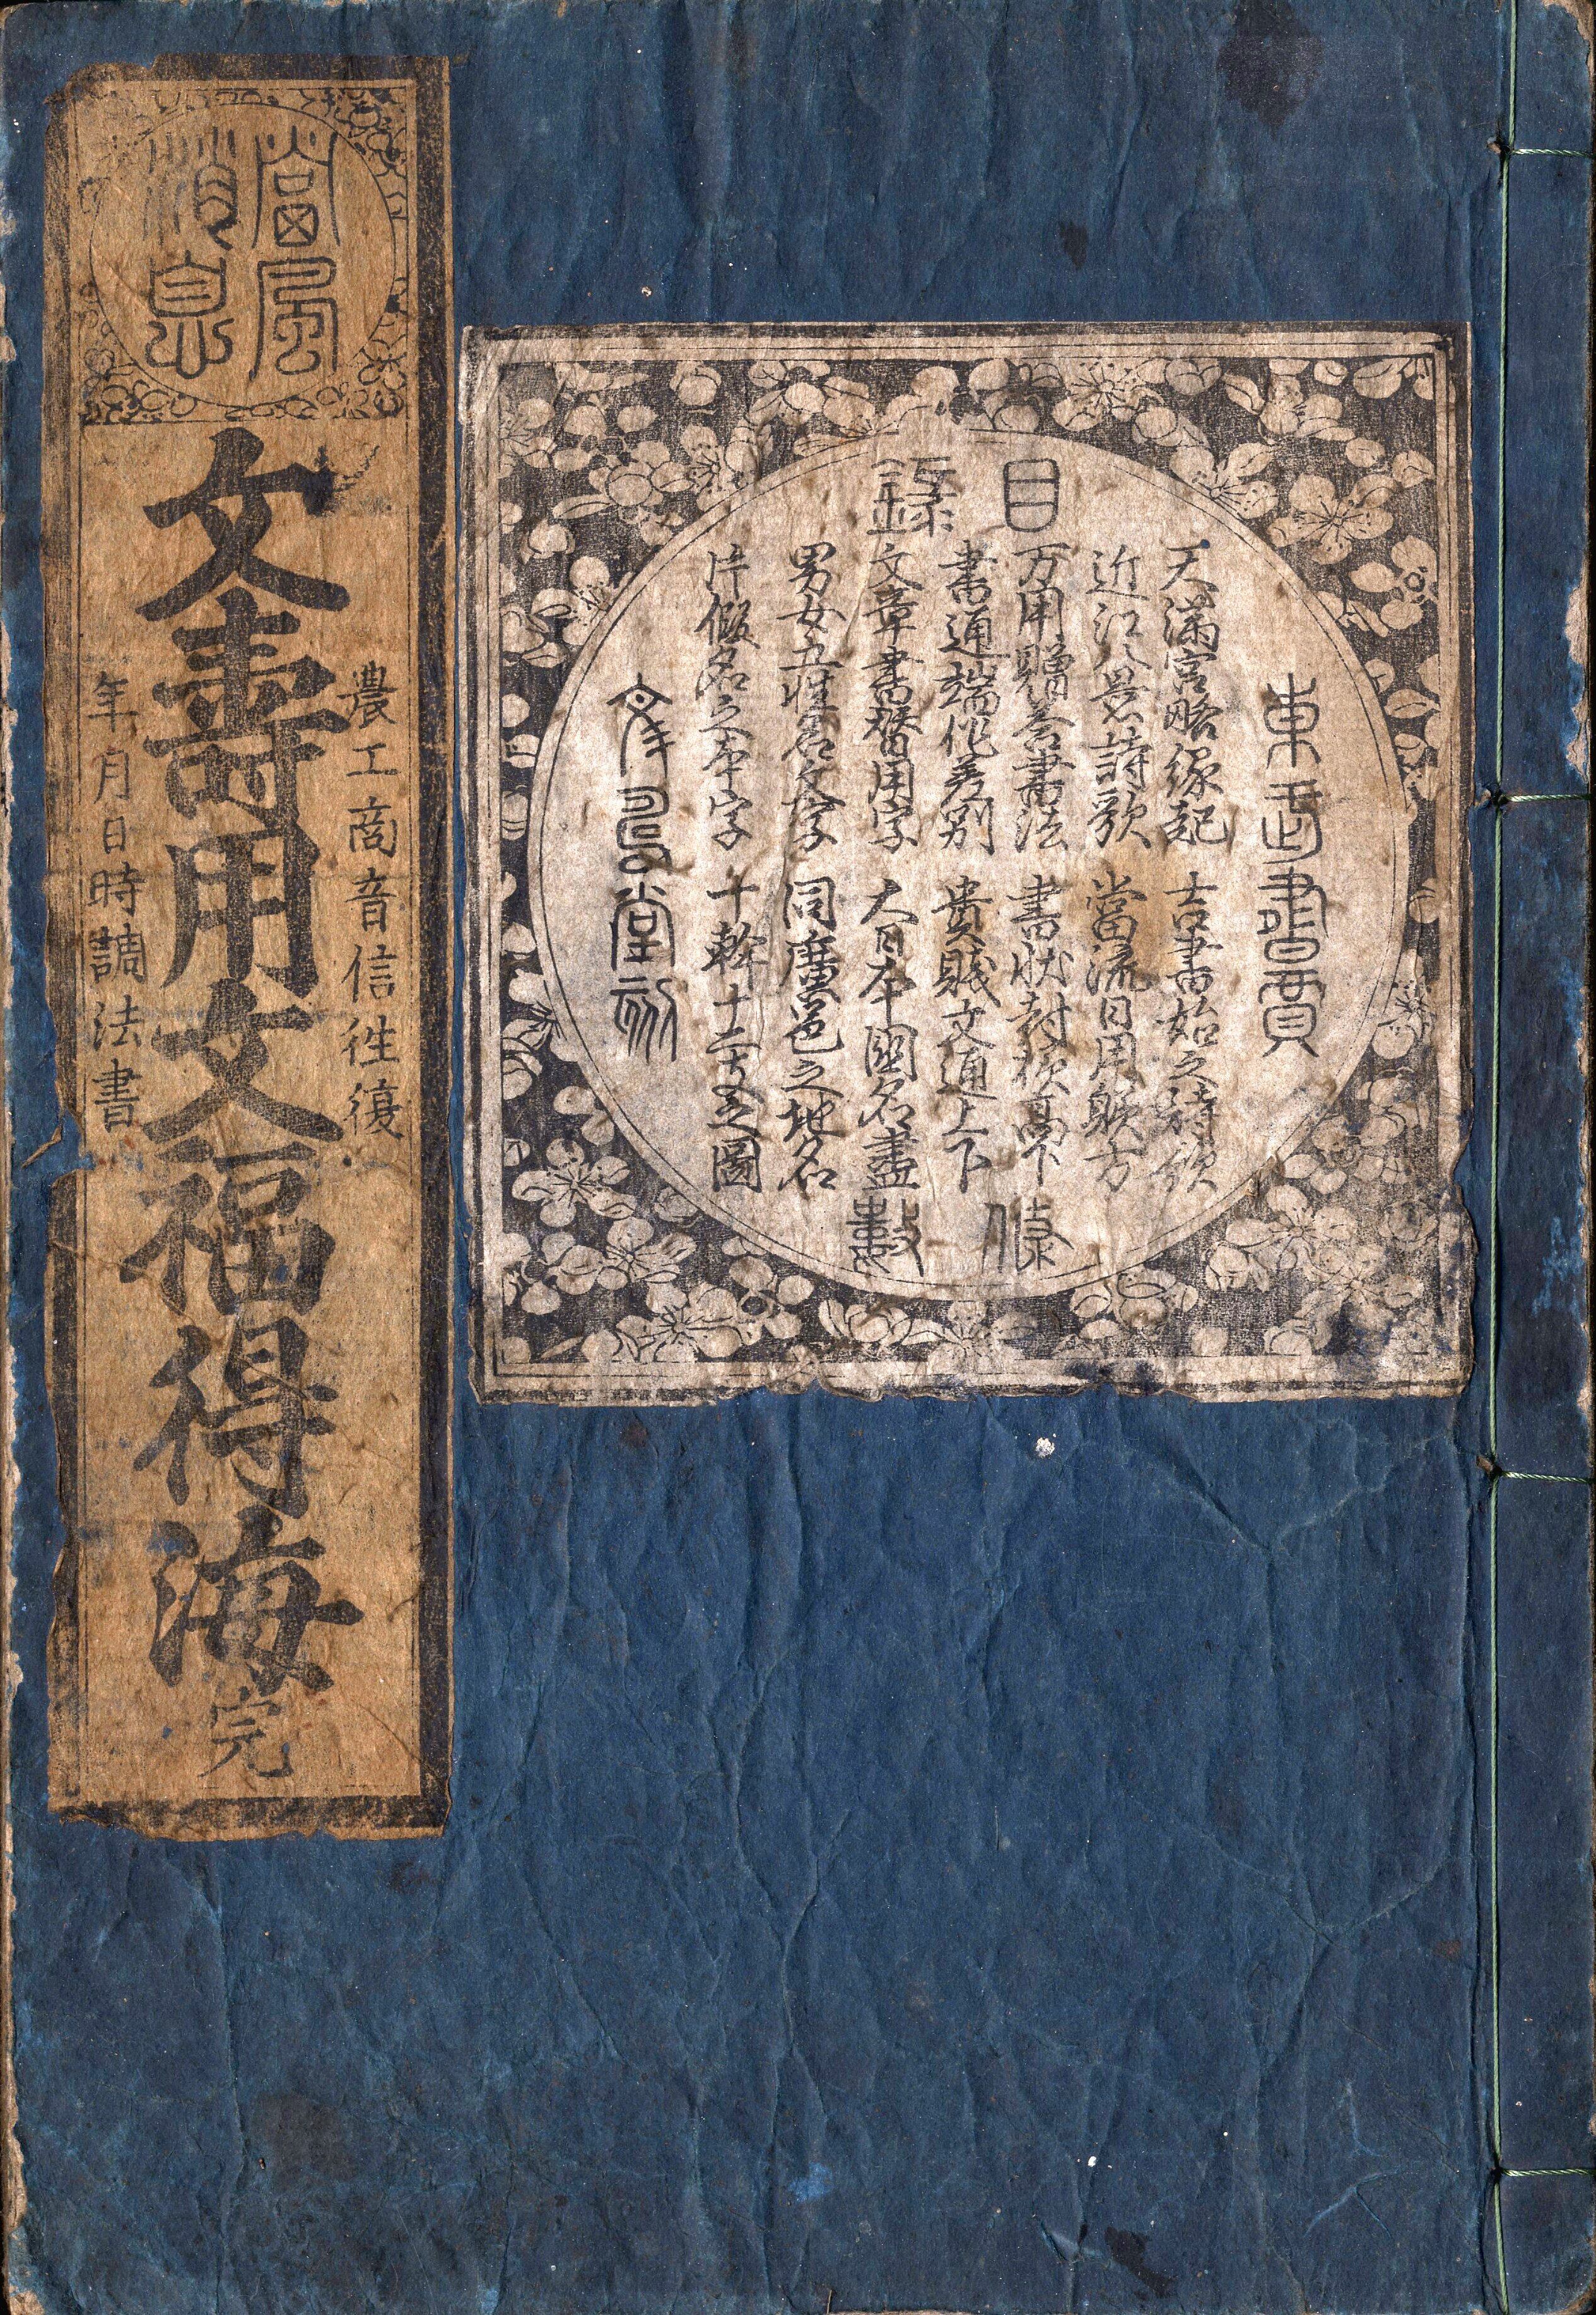 當風
消息
農工商音信徃復
文壽用文福得海 完
年月日時調法書
目録
東武書賈
天満宮略縁起 吉書始之詩歌
近江八景詩歌 當流日用躾方
万用贈答書法 書状封様高下
書通端作差別 貴賤文通上下
文章書替用字 大日本國名盡
男女五性名文字 同廣邑之地名
片假名之本字 十幹十二支之圖
堂刻
條數